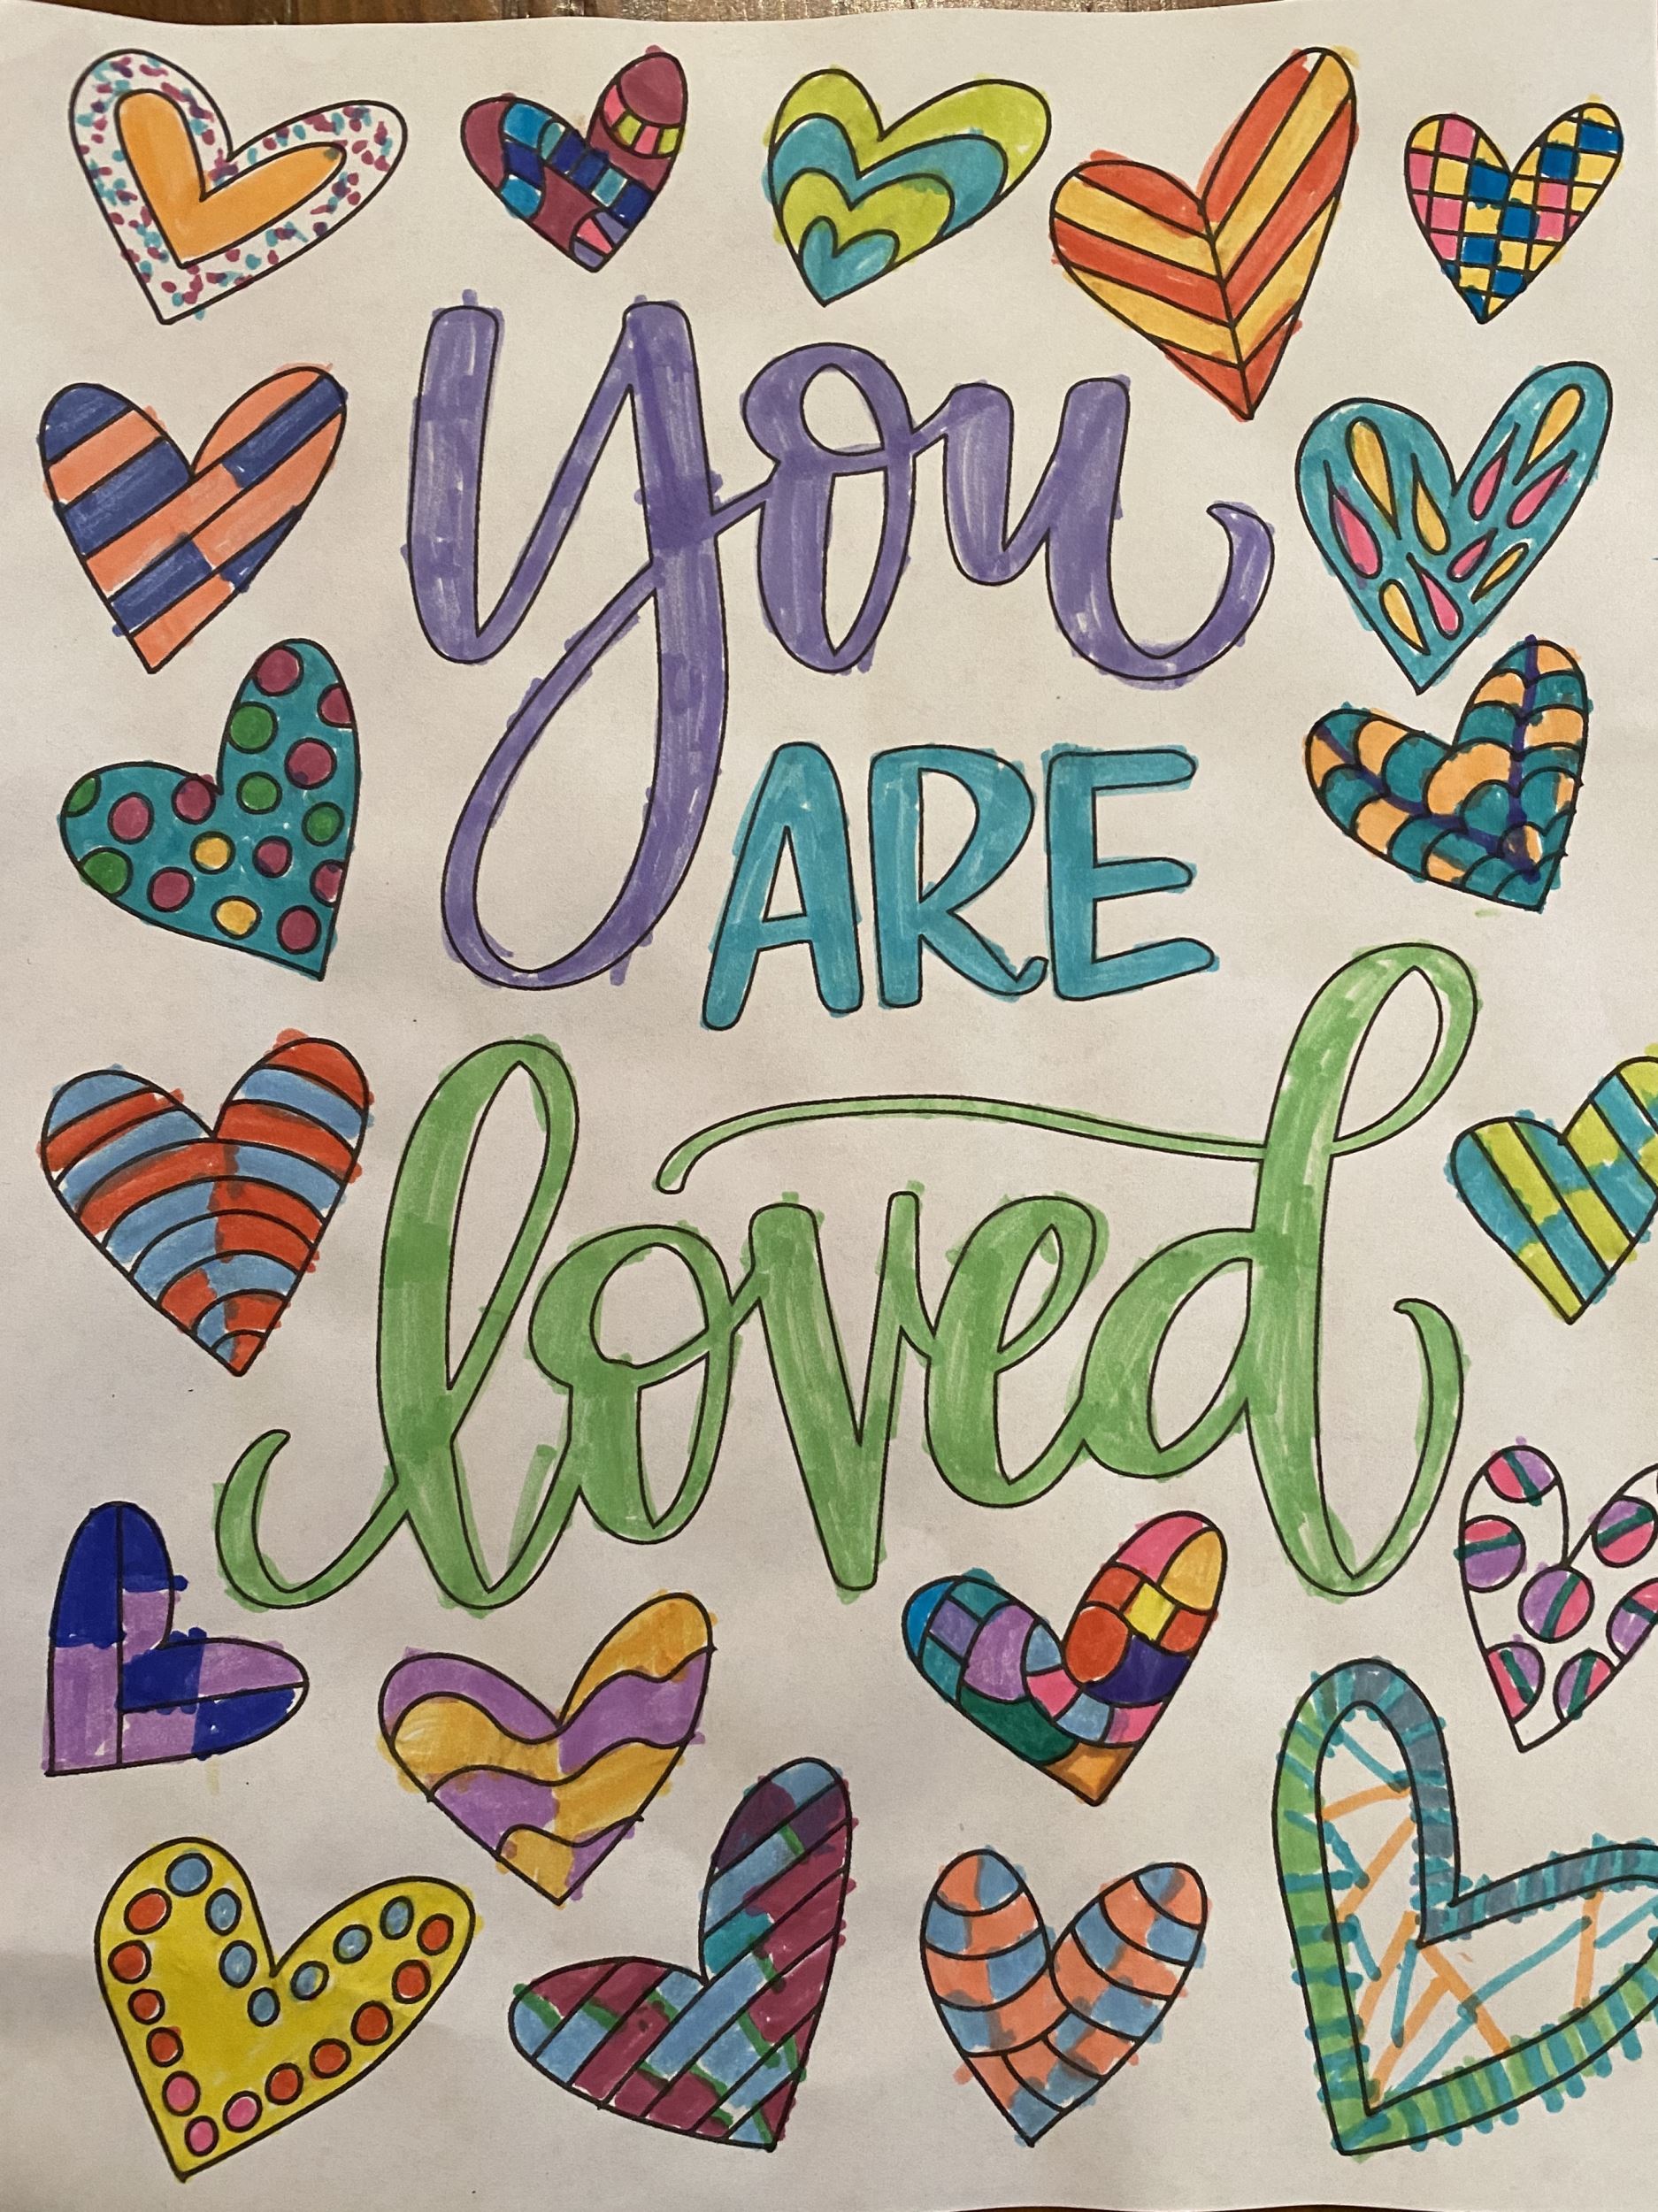 you
ARE
loved